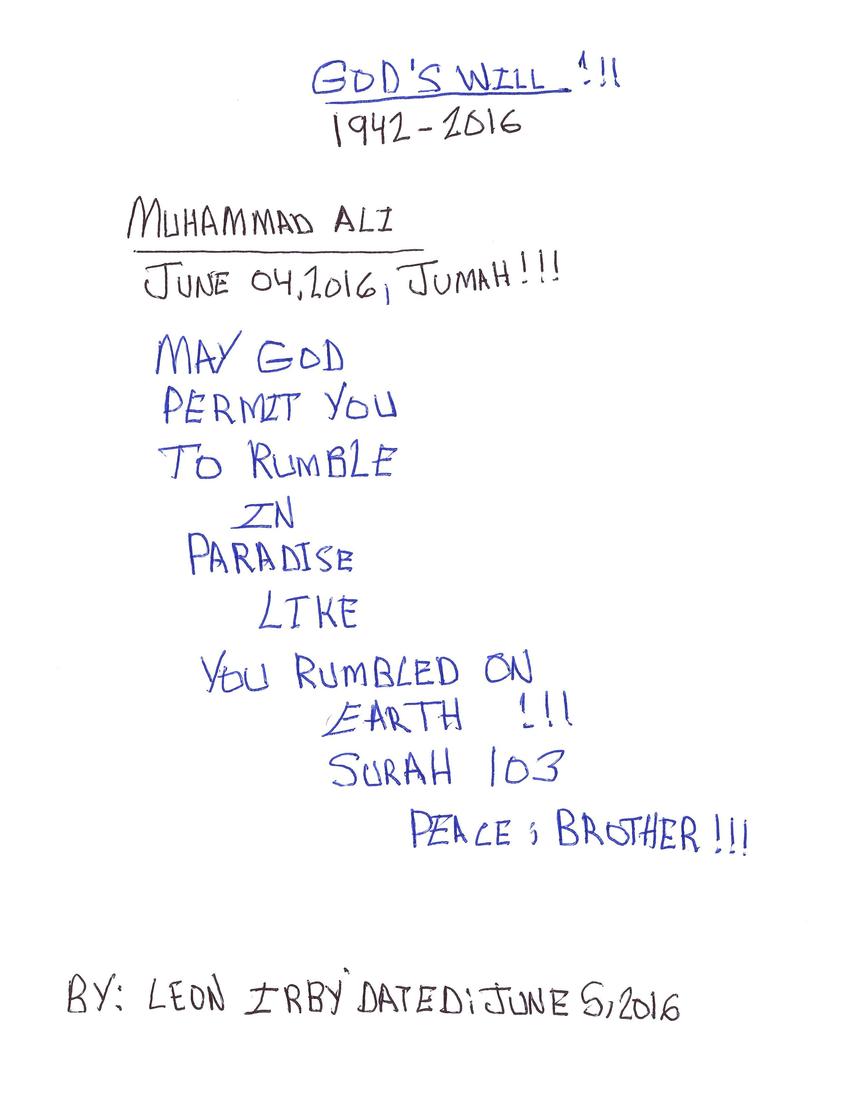 GOD'S WILL !!!
1942-2016
MUHAMMAD ALI
JUNE 04, 2016, JUMAH!!!
MAY GOD
PERMIT YOU
TO RUMBLE
IN
PARADISE
LIKE
YOU RUMBLED ON
EARTH !!!
SURAH 103
PEACE ; BROTHER !!!
BY: LEON IRBY DATED; JUNE 5, 2016